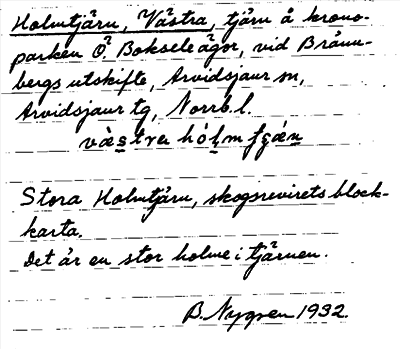 Holmtjärn, Västra, tjärn å krono-
parken Ö. Bokseleägor, vid Bränn-
bergs utskifte, Arvidsjaur sn,
Arvidsjaur tg, Norrb. l.
vàstra hólmſçæ̀ṇ
Stora Holmtjärn, skogsrevirets block-
karta.
Det är en stor holme i tjärnen.
B. Nygren 1932.